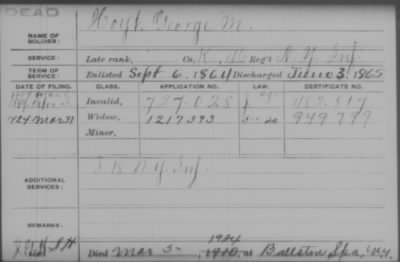 DEAD
Hoyt, George M.
NAME OF SOLDIER:
SERVICE: Late rank, Co. K, Reg't N. Y. Inf.
TERM OF SERVICE: Enlisted Sept 6, 1864 Discharged June 3, 1865
DATE OF FILING. CLASS. APPLICATION NO. LAW. CERTIFICATE NO.
Invalid, 727.028
1924 Mar 31 Widow, 1217393 949799
Minor,
ADDITIONAL SERVICES: N.Y. Inf.
REMARKS:
1924
Died Mar 5- , 1910, at Ballston Spa, N.Y.